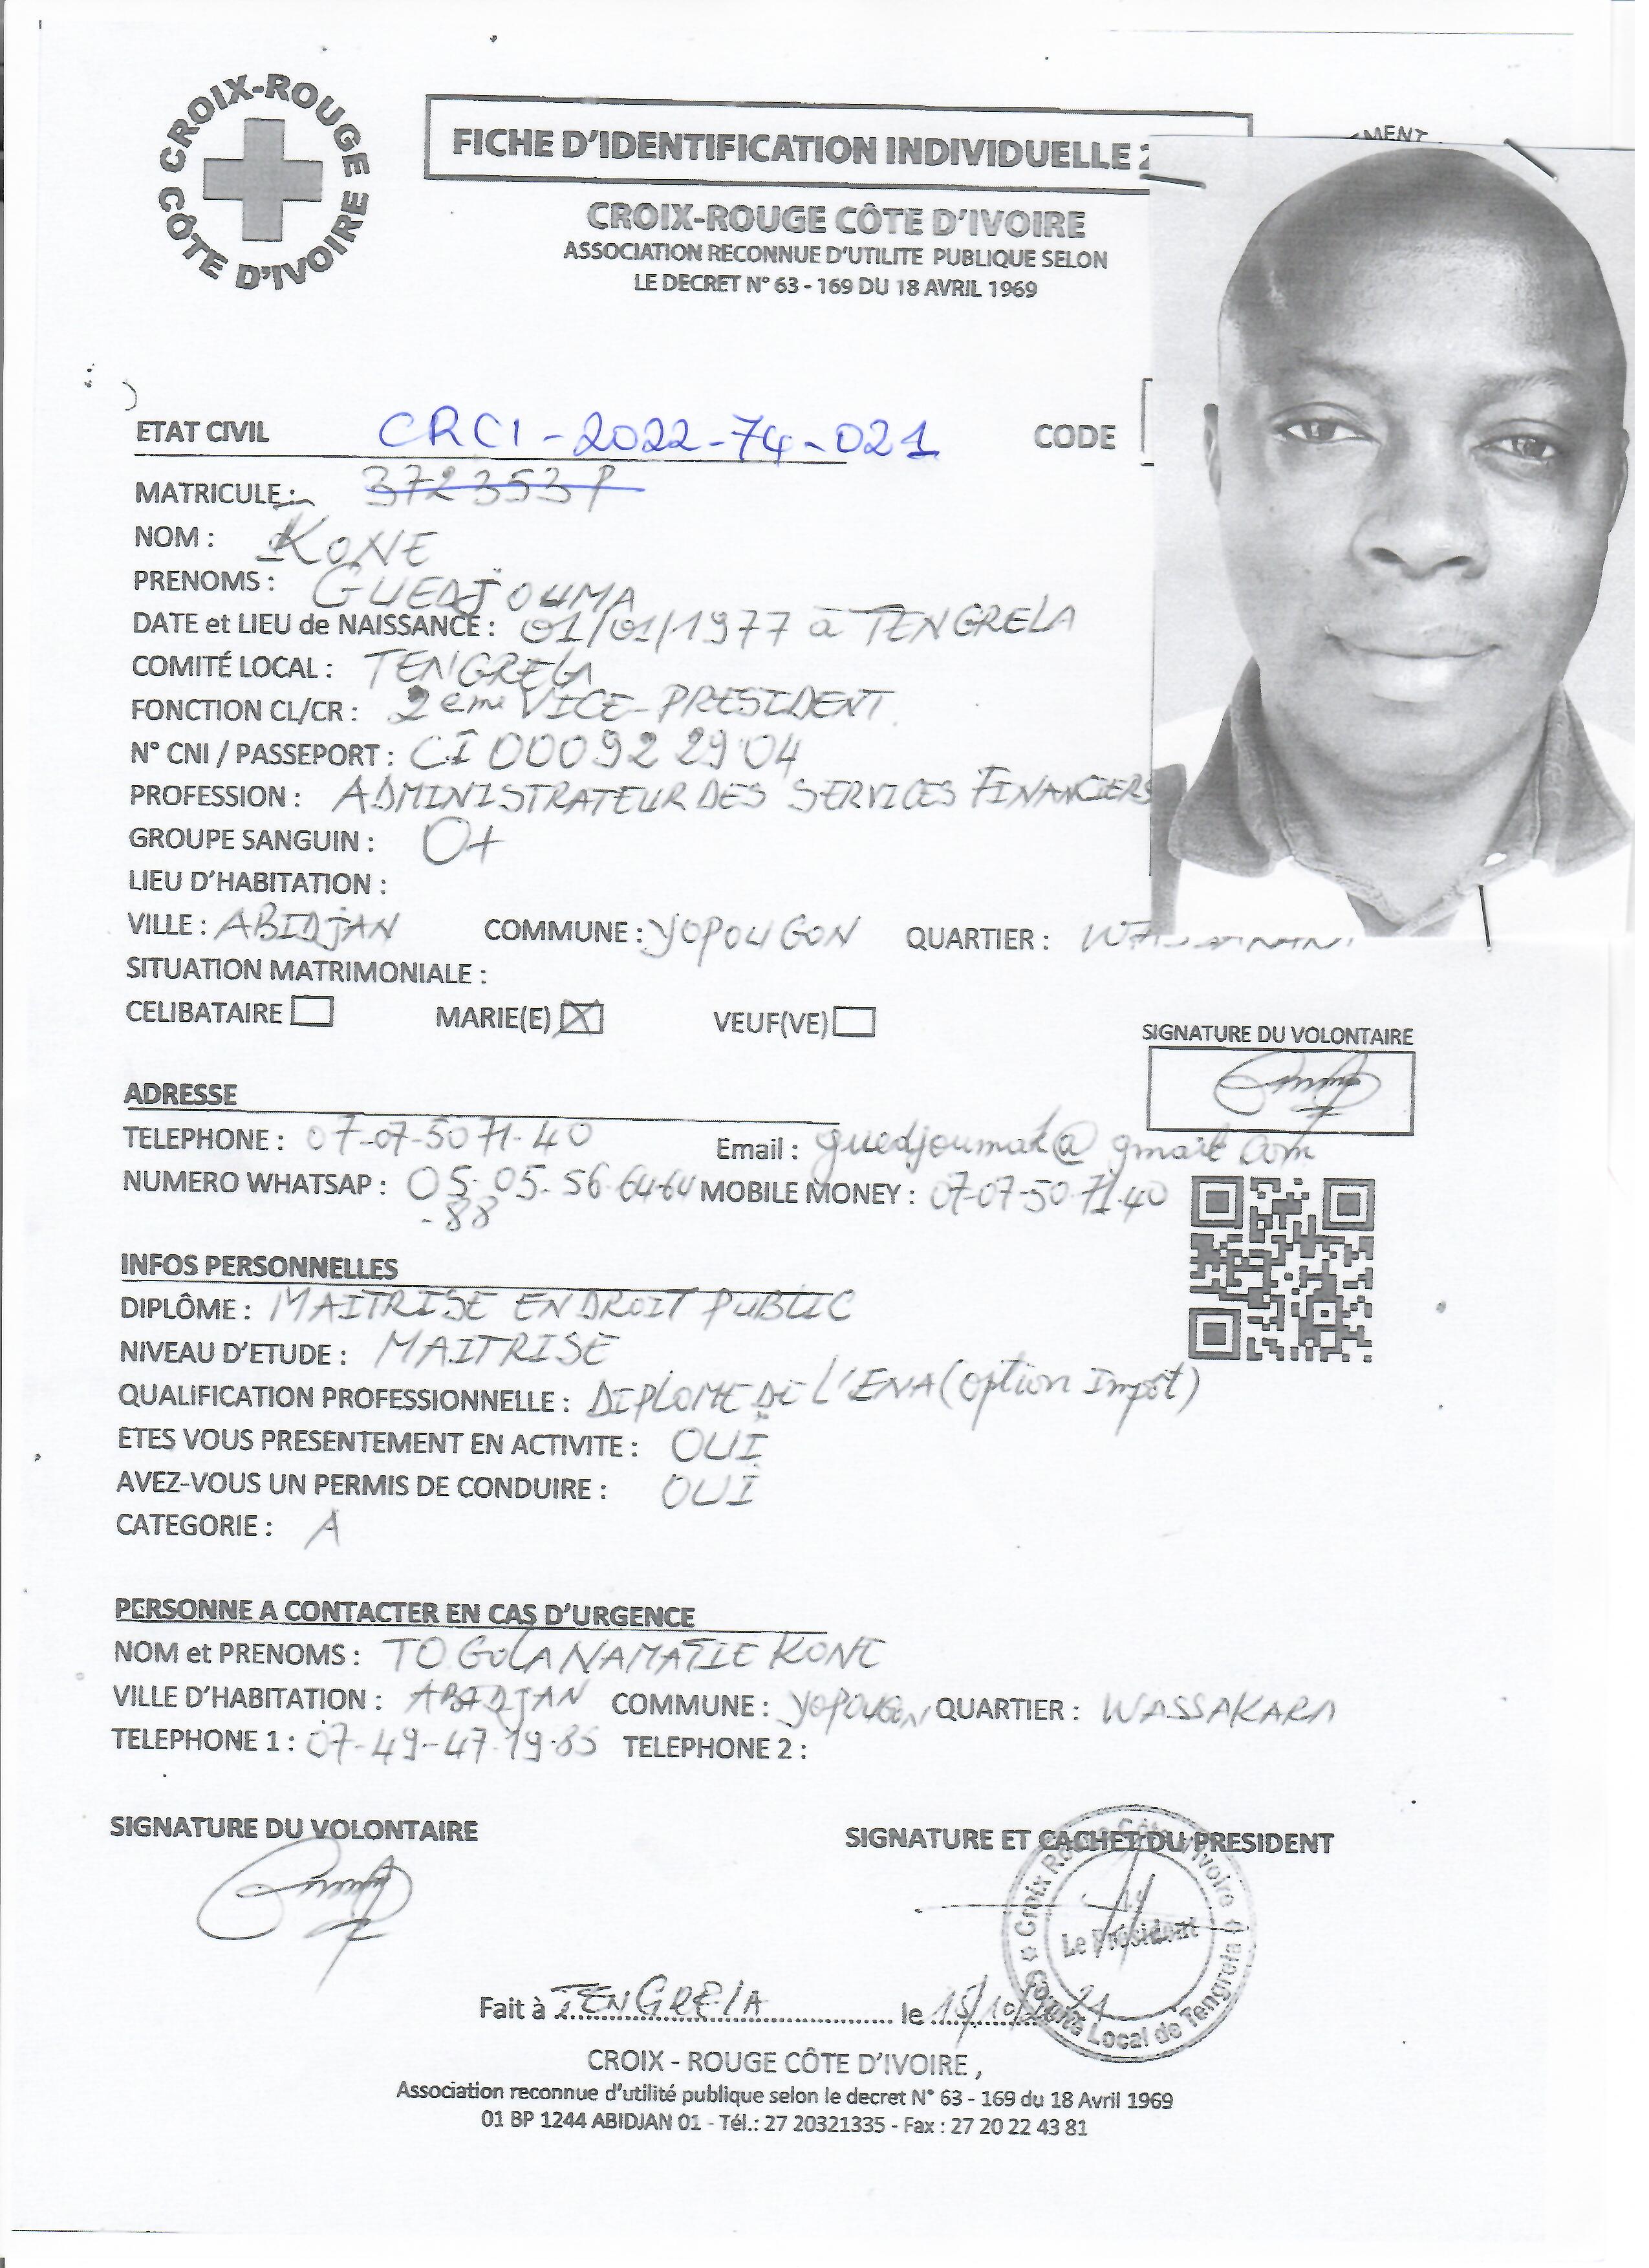 CROIX-ROUGE
CÔTE D'IVOIRE
FICHE D'IDENTIFICATION INDIVIDUELLE
MENT
CROIX-ROUGE CÔTE D'IVOIRE
ASSOCIATION RECONNUE D'UTILITE PUBLIQUE SELON
LE DECRET N° 63 - 169 DU 18 AVRIL 1969
ETAT CIVIL CRCI-2022-74-021 CODE
MATRICULE : 372353P
NOM : KONE
PRENOMS : GUEDJOUMA
DATE et LIEU de NAISSANCE : 01/01/1977 à TENGRELA
COMITÉ LOCAL : TENGRELA
FONCTION CL/CR : 2eme VICE-PRESIDENT
N° CNI / PASSEPORT : CI 000 92 29 04
PROFESSION : ADMINISTRATEUR DES SERVICES FINANCIERS
GROUPE SANGUIN : O+
LIEU D'HABITATION :
VILLE : ABIDJAN COMMUNE : YOPOUGON QUARTIER :
SITUATION MATRIMONIALE :
CELIBATAIRE MARIE(E) VEUF(VE)
SIGNATURE DU VOLONTAIRE
ADRESSE
TELEPHONE : 07-07-50 71-40 Email : guedjoumak@gmail.com
NUMERO WHATSAP : 05-05-56-64-64 MOBILE MONEY : 07-07-50-71-40
-88
INFOS PERSONNELLES
DIPLÔME : MAITRISE EN DROIT PUBLIC
NIVEAU D'ETUDE : MAITRISE
QUALIFICATION PROFESSIONNELLE : DIPLOME DE L'ENA (option Impôt)
ETES VOUS PRESENTEMENT EN ACTIVITE : OUI
AVEZ-VOUS UN PERMIS DE CONDUIRE : OUI
CATEGORIE : A
PERSONNE A CONTACTER EN CAS D'URGENCE
NOM et PRENOMS : TOGOLA NAMATIE KONE
VILLE D'HABITATION : ABIDJAN COMMUNE : YOPOUGON QUARTIER : WASSAKARA
TELEPHONE 1 : 07-49-47-19-85 TELEPHONE 2 :
SIGNATURE DU VOLONTAIRE
SIGNATURE ET CACHET DU PRESIDENT
Croix Rouge Côte d'Ivoire
Le Président
Comité Local de Tengrela
Fait à TENGRELA le 15/10/2021
CROIX - ROUGE CÔTE D'IVOIRE ,
Association reconnue d'utilité publique selon le decret N° 63 - 169 du 18 Avril 1969
01 BP 1244 ABIDJAN 01 - Tél.: 27 20321335 - Fax : 27 20 22 43 81